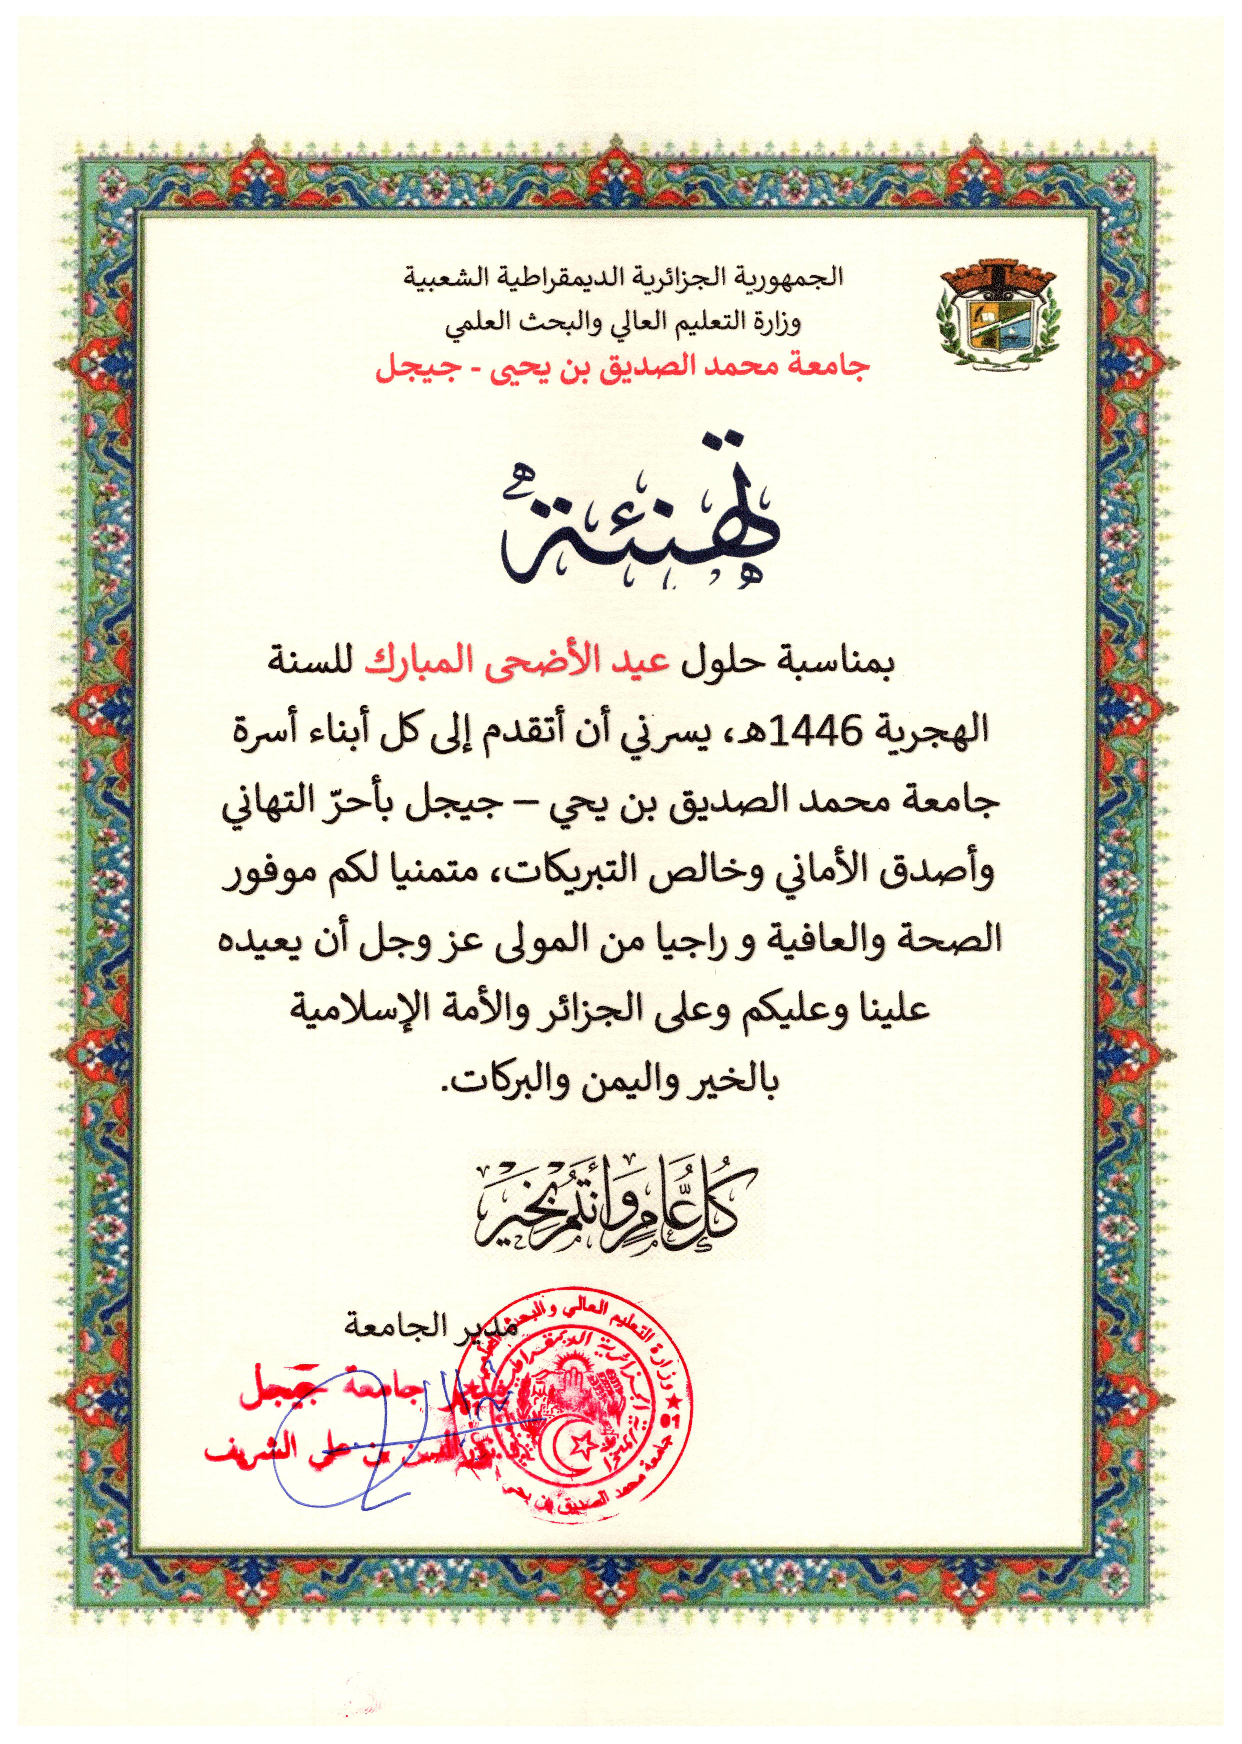 الجمهورية الجزائرية الديمقراطية الشعبية
وزارة التعليم العالي والبحث العلمي
جامعة محمد الصديق بن يحيى - جيجل
تهنئة
بمناسبة حلول عيد الأضحى المبارك للسنة
الهجرية 1446هـ، يسرني أن أتقدم إلى كل أبناء أسرة
جامعة محمد الصديق بن يحي – جيجل بأحرّ التهاني
وأصدق الأماني وخالص التبريكات، متمنيا لكم موفور
الصحة والعافية و راجيا من المولى عز وجل أن يعيده
علينا وعليكم وعلى الجزائر والأمة الإسلامية
بالخير واليمن والبركات.
كُلُّ عَامٍ وَأَنْتُمْ بِخَيْرٍ
مدير الجامعة
مدير جامعة جيجل
بن علي الشريف
وزارة التعليم العالي والبحث العلمي
الجمهورية الجزائرية الديمقراطية
01
جامعة محمد الصديق بن يحي